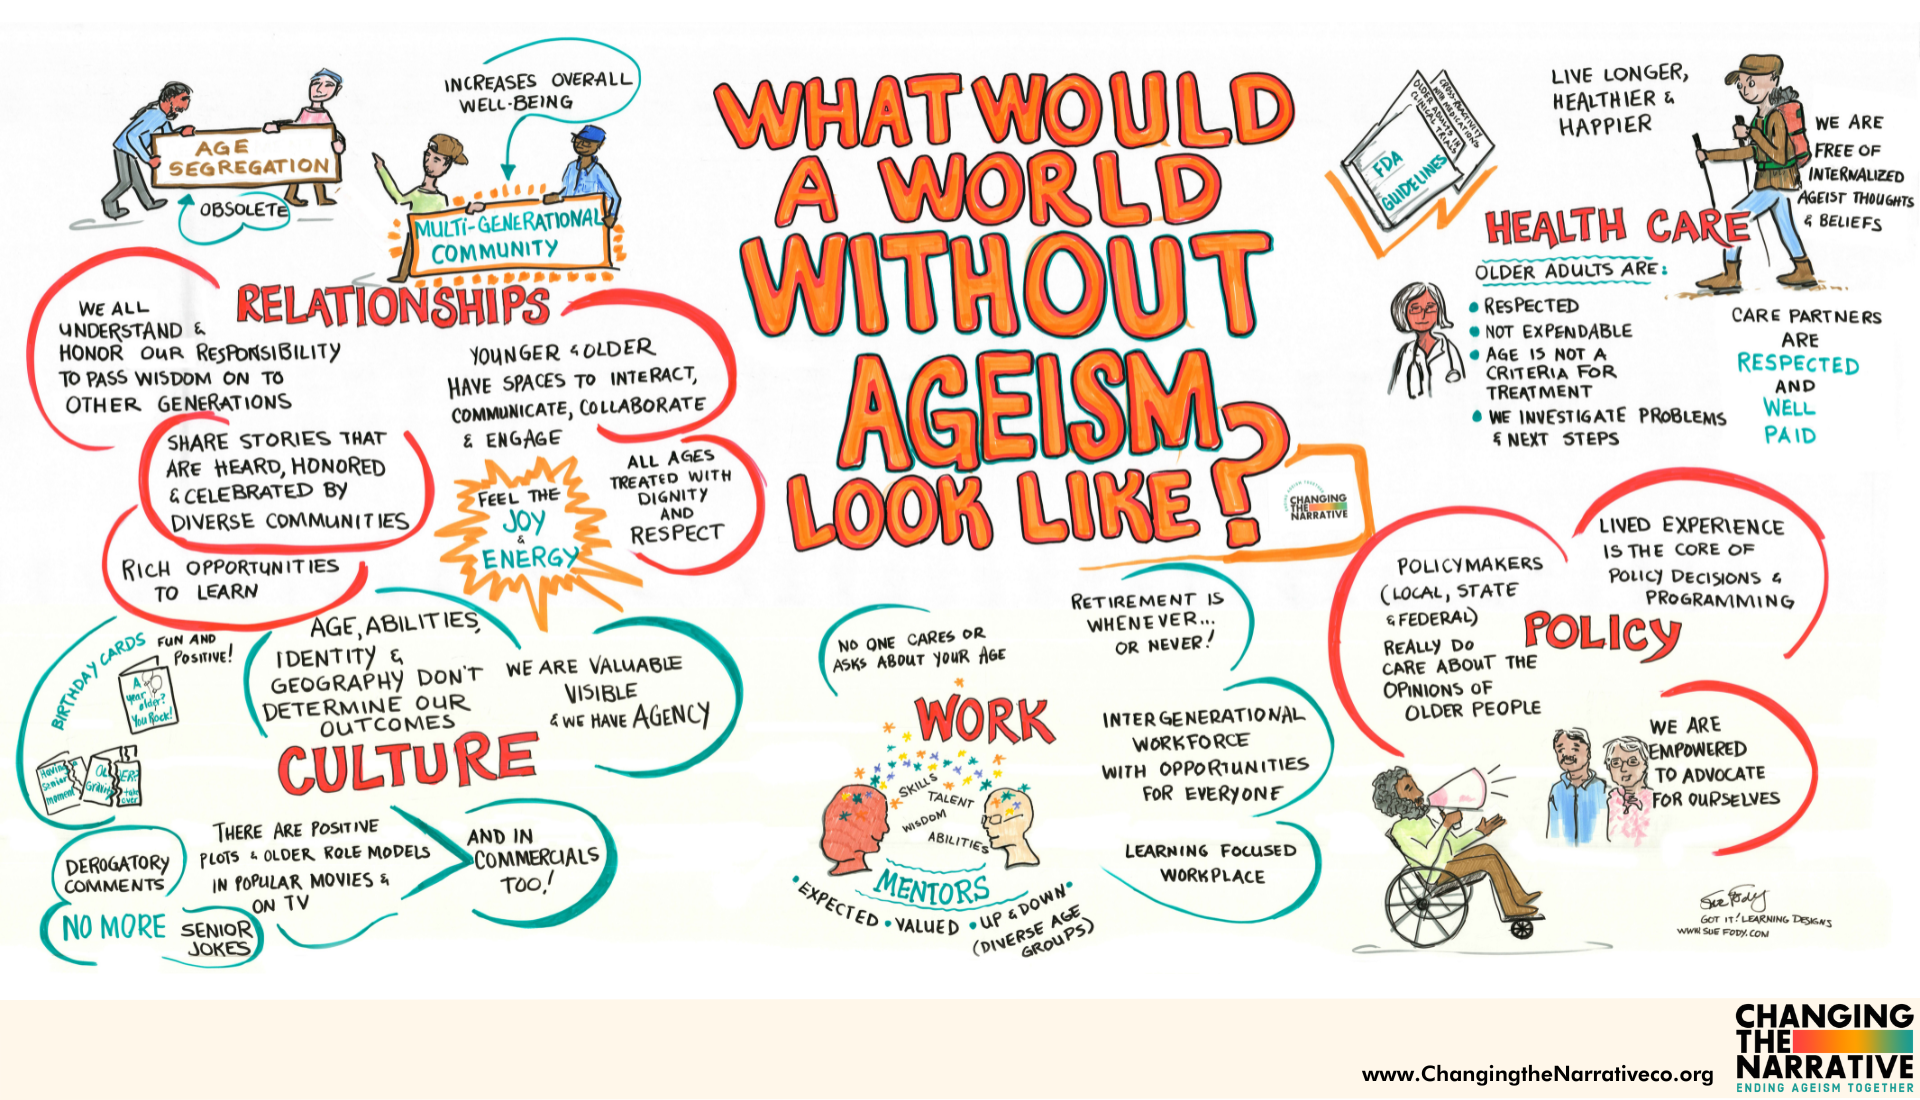 WHAT WOULD
A WORLD
WITHOUT
AGEISM
LOOK LIKE?
CHANGING
THE
NARRATIVE
AGE
SEGREGATION
OBSOLETE
INCREASES OVERALL
WELL-BEING
MULTI-GENERATIONAL
COMMUNITY
RELATIONSHIPS
WE ALL
UNDERSTAND &
HONOR OUR RESPONSIBILITY
TO PASS WISDOM ON TO
OTHER GENERATIONS
SHARE STORIES THAT
ARE HEARD, HONORED
& CELEBRATED BY
DIVERSE COMMUNITIES
RICH OPPORTUNITIES
TO LEARN
YOUNGER & OLDER
HAVE SPACES TO INTERACT,
COMMUNICATE, COLLABORATE
& ENGAGE
FEEL THE
JOY
&
ENERGY
ALL AGES
TREATED WITH
DIGNITY
AND
RESPECT
BIRTHDAY CARDS
FUN AND
POSITIVE!
A
year
older?
You Rock!
Having a
Senior
moment
OL
ER?
Gravity
take
over
AGE, ABILITIES,
IDENTITY &
GEOGRAPHY DON'T
DETERMINE OUR
OUTCOMES
WE ARE VALUABLE
VISIBLE
& WE HAVE AGENCY
CULTURE
DEROGATORY
COMMENTS
NO MORE
SENIOR
JOKES
THERE ARE POSITIVE
PLOTS & OLDER ROLE MODELS
IN POPULAR MOVIES &
ON TV
AND IN
COMMERCIALS
TOO!
NO ONE CARES OR
ASKS ABOUT YOUR AGE
RETIREMENT IS
WHENEVER...
OR NEVER!
WORK
SKILLS
TALENT
WISDOM
ABILITIES
MENTORS
• EXPECTED • VALUED • UP & DOWN •
(DIVERSE AGE
GROUPS)
INTERGENERATIONAL
WORKFORCE
WITH OPPORTUNITIES
FOR EVERYONE
LEARNING FOCUSED
WORKPLACE
CROSS-REACTIVITY
WITH MEDICATIONS
OLDER ADULTS IN
CLINICAL TRIALS
FDA
GUIDELINES
LIVE LONGER,
HEALTHIER &
HAPPIER
WE ARE
FREE OF
INTERNALIZED
AGEIST THOUGHTS
& BELIEFS
HEALTH CARE
OLDER ADULTS ARE:
• RESPECTED
• NOT EXPENDABLE
• AGE IS NOT A
CRITERIA FOR
TREATMENT
• WE INVESTIGATE PROBLEMS
& NEXT STEPS
CARE PARTNERS
ARE
RESPECTED
AND
WELL
PAID
POLICYMAKERS
(LOCAL, STATE
& FEDERAL)
REALLY DO
CARE ABOUT THE
OPINIONS OF
OLDER PEOPLE
LIVED EXPERIENCE
IS THE CORE OF
POLICY DECISIONS &
PROGRAMMING
POLICY
WE ARE
EMPOWERED
TO ADVOCATE
FOR OURSELVES
Sue Fody
GOT IT! LEARNING DESIGNS
WWW.SUEFODY.COM
www.ChangingtheNarrativeco.org
CHANGING
THE
NARRATIVE
ENDING AGEISM TOGETHER